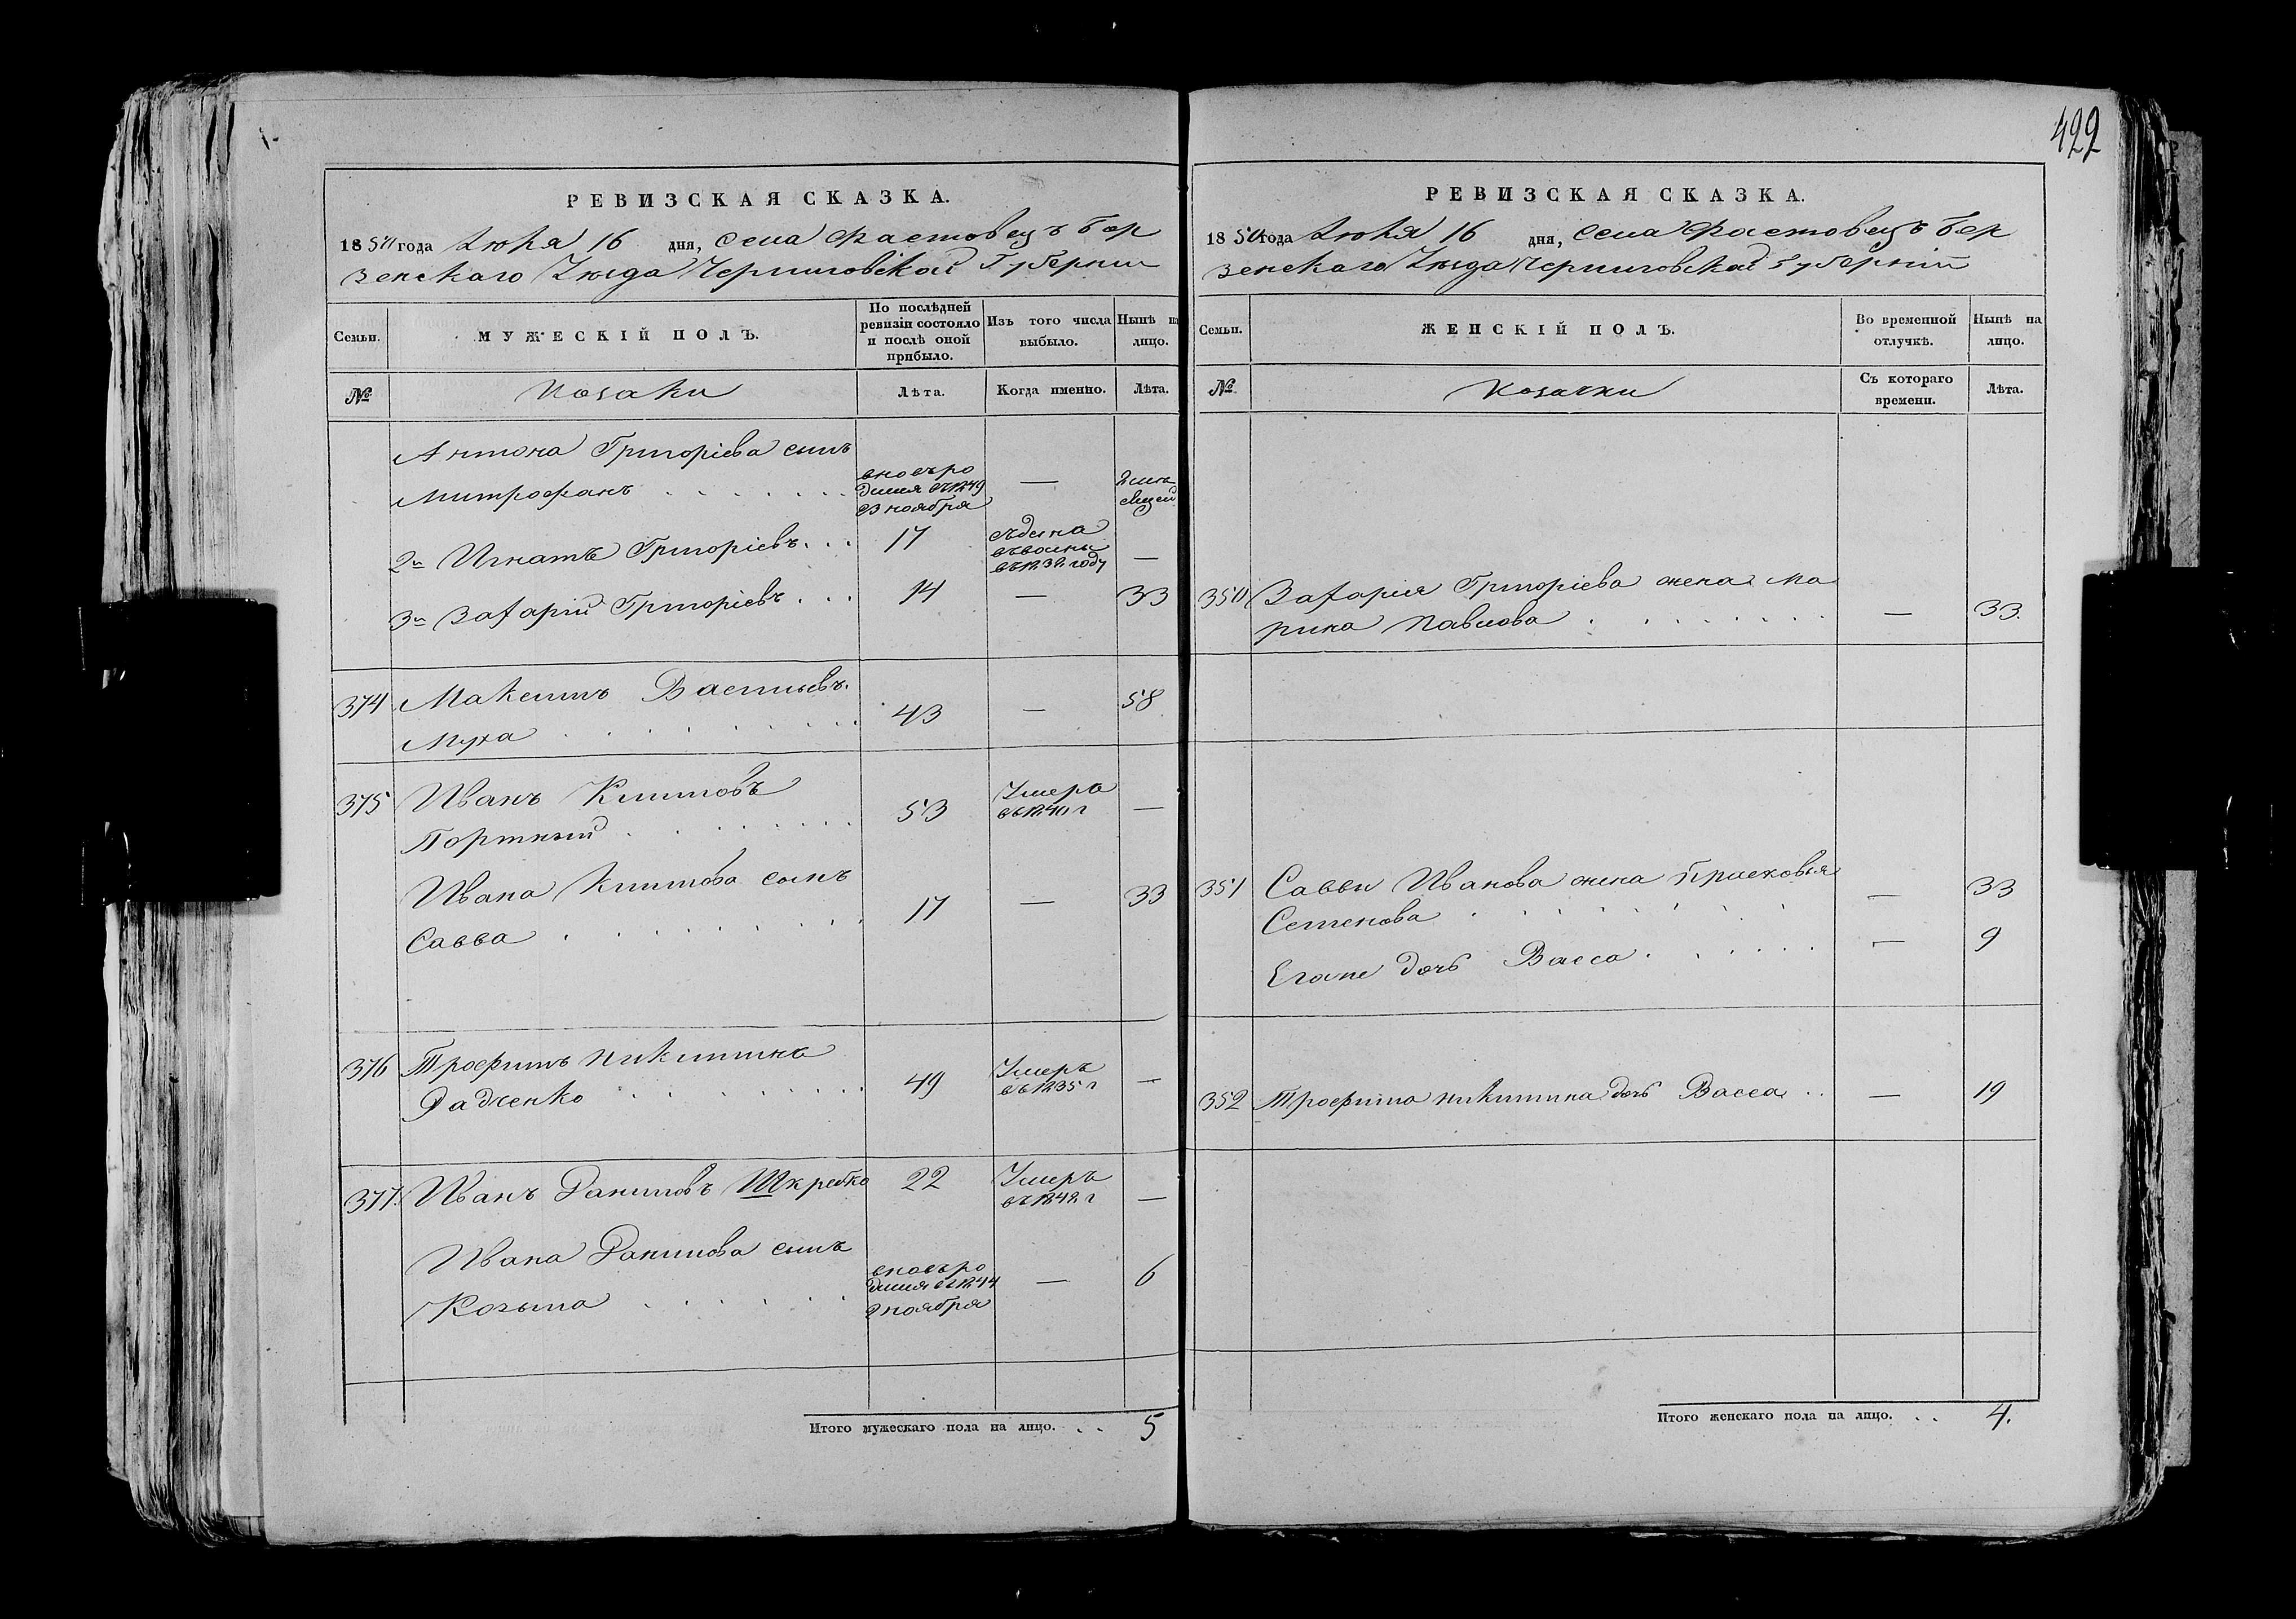 422
РЕВИЗСКАЯ СКАЗКА.
1850 года Июня 16 дня, села Фастовецъ Бор
зенскаго Уѣзда Черниговской Губерніи
Семьи.
МУЖЕСКІЙ ПОЛЪ.
По послѣдней ревизіи состояло и послѣ оной прибыло.
Изъ того числа выбыло.
Нынѣ на лицо.
№
Козаки
Лѣта.
Когда именно.
Лѣта.
Антона Григоріева сынъ
Митрофанъ
вновь ро
дился въ 1849
ноября
2й Игнатъ Григорієвъ 17
въ 183 году —
3й Захарій Григорієвъ 14 — 33
374 Максимъ Васильевъ
Муха 43 — 58
375 Иванъ Климовъ
Портный 53 Умеръ
въ 1840 г —
Ивана Климова сынъ
Савва 17 — 33
376 Трофимъ Никитинъ
Радченко 49 Умеръ
въ 1835 г —
377. Иванъ Даниловъ Шкребко 22 Умеръ
въ 1848 г —
Ивана Данилова сынъ
Козьма
вновь ро
дился въ 1844
ноября — 6
Итого мужескаго пола на лицо. . . 5
РЕВИЗСКАЯ СКАЗКА.
1850 года Июня 16 дня, села Фастовецъ Бор
зенскаго Уѣзда Черниговской Губерніи
Семьи.
ЖЕНСКІЙ ПОЛЪ.
Во временной отлучкѣ.
Нынѣ на лицо.
№
Козачки
Съ котораго времени.
Лѣта.
350 Захарія Григоріева жена Ма
рина Павлова — 33.
351 Саввы Иванова жена Прасковья
Семенова — 33
Его же дочь Васса — 9
352 Трофима Никитина дочь Васса — 19
Итого женскаго пола на лицо. . . 4.